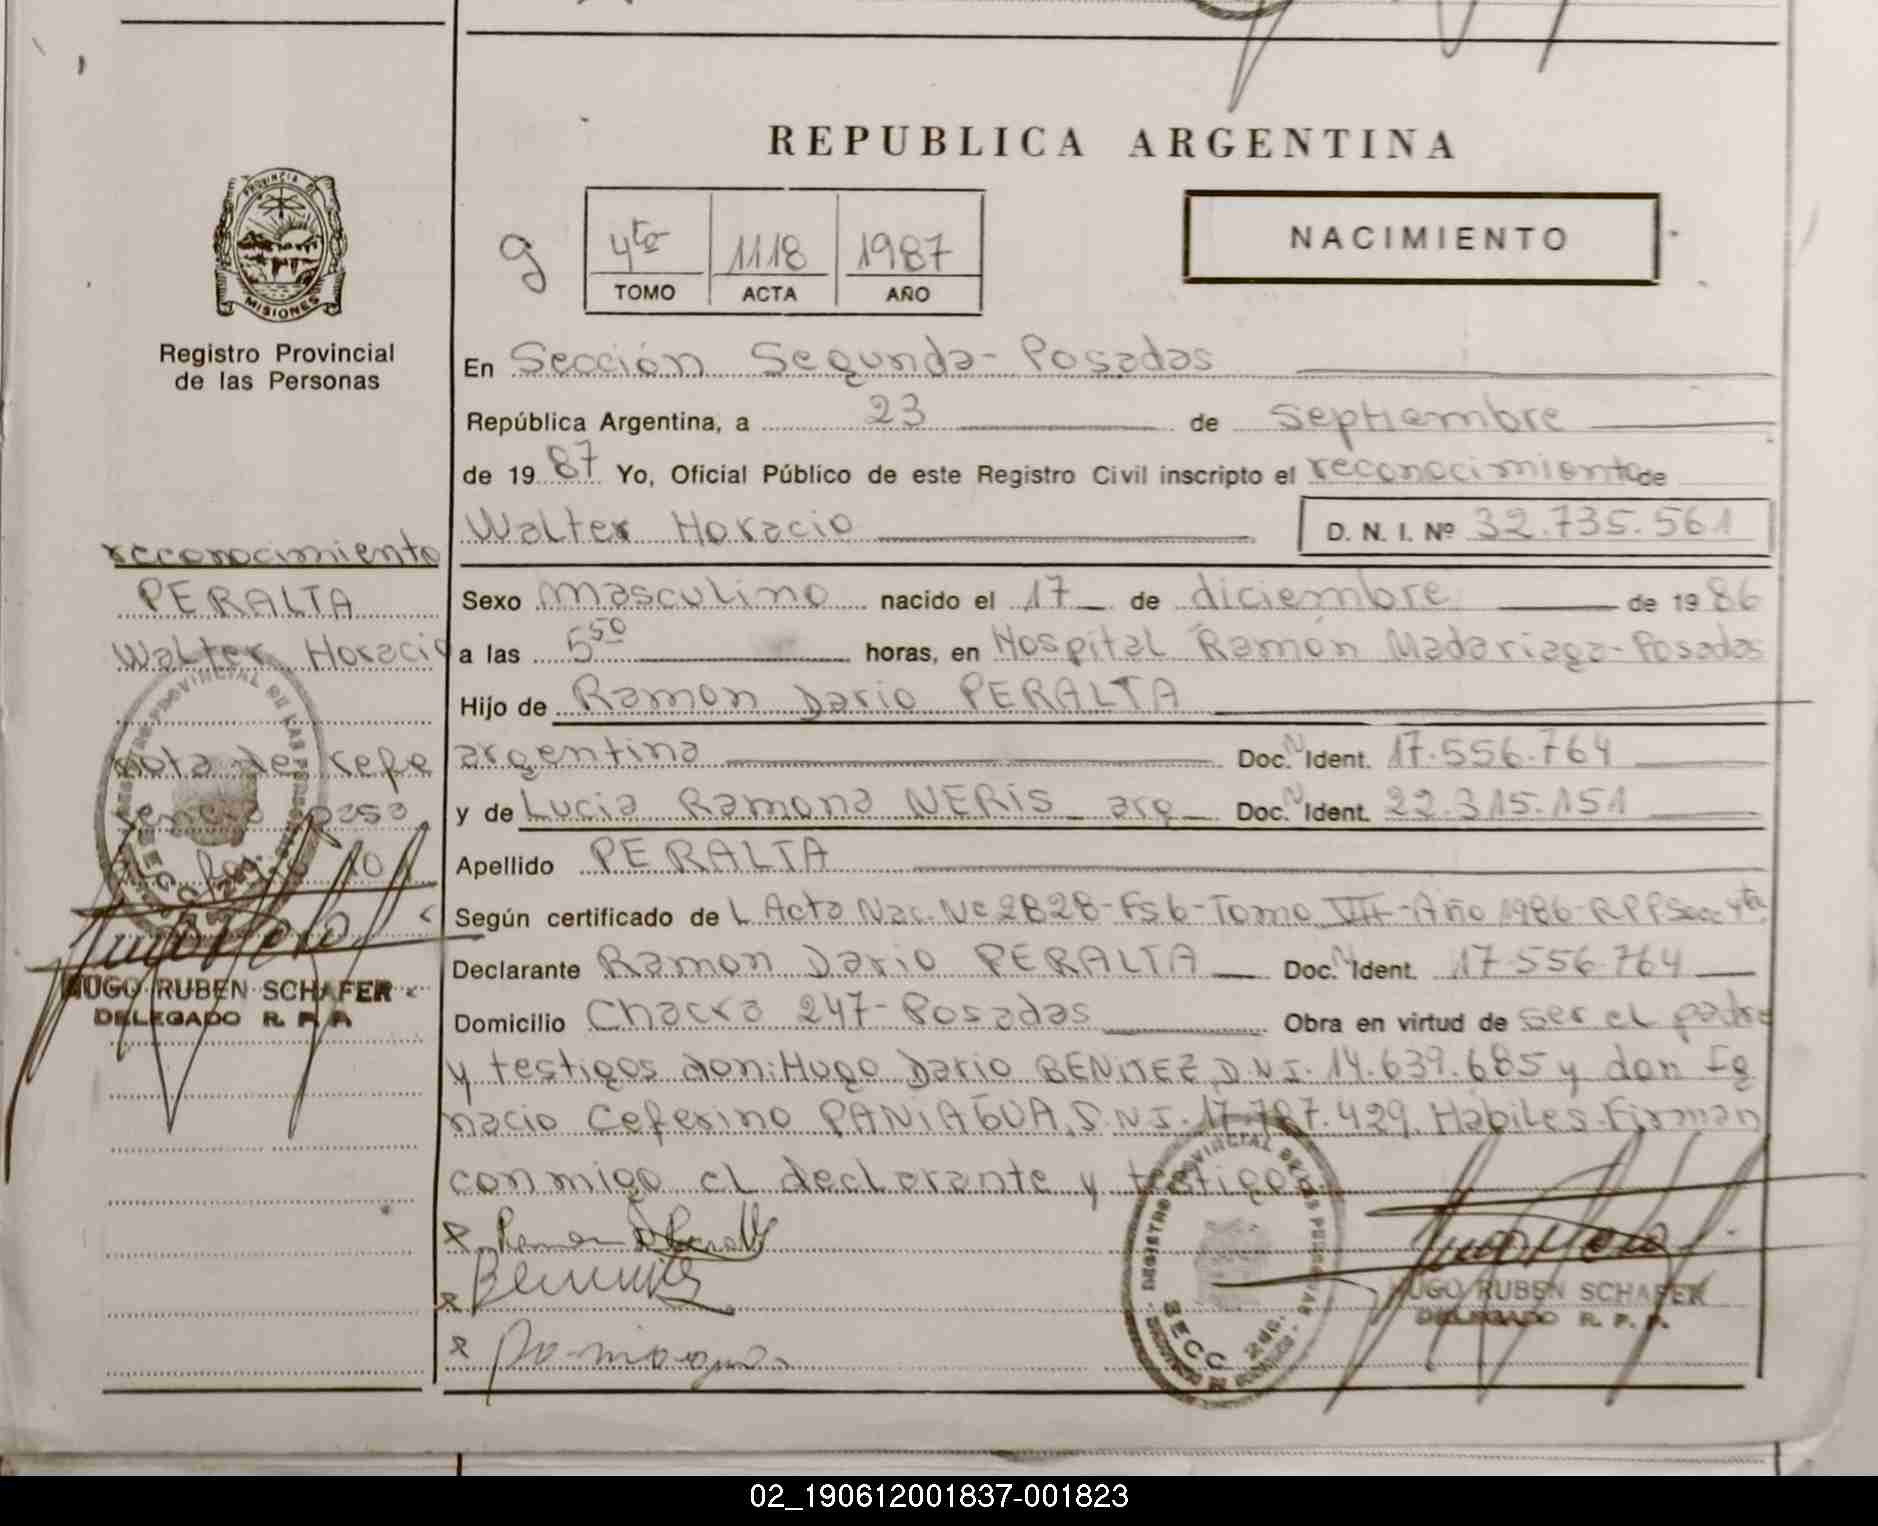 REPUBLICA ARGENTINA
PROVINCIA DE
MISIONES
Registro Provincial
de las Personas
9
4to 1118 1987
TOMO ACTA AÑO
NACIMIENTO
En Sección Segunda- Posadas
República Argentina, a 23 de septiembre
de 1987 Yo, Oficial Público de este Registro Civil inscripto el reconocimiento de
Walter Horacio D. N. I. Nº 32.735.561
Sexo masculino nacido el 17 de diciembre de 1986
a las 5 50 horas, en Hospital Ramón Madariaga-Posadas
Hijo de Ramon Dario PERALTA
argentina Doc. N Ident. 17.556.764
y de Lucia Ramona NERIS arg Doc. N Ident. 22.315.151
Apellido PERALTA
Según certificado de L Acta Nac. Nº 2828-Fs6-Tomo VII-Año 1986-RPPSecc 4ta
Declarante Ramon Dario PERALTA Doc. N Ident. 17 556 764
Domicilio Chacra 247-Posadas Obra en virtud de ser el padre
y testigos don: Hugo Dario BENITEZ D.N.I. 14.639.685 y don Ig
nacio Ceferino PANIAGUA, D.N.I. 17.787.429. Hábiles. Firman
conmigo el declarante y testigos
reconocimiento
PERALTA
Walter Horacio
nota de refe
rencia paso
10
HUGO RUBEN SCHAFER
DELEGADO R. P. P.
REGISTRO PROVINCIAL DE LAS PERSONAS
SECC. 2da.
HUGO RUBEN SCHAFER
DELEGADO R. P. P.
02_190612001837-001823